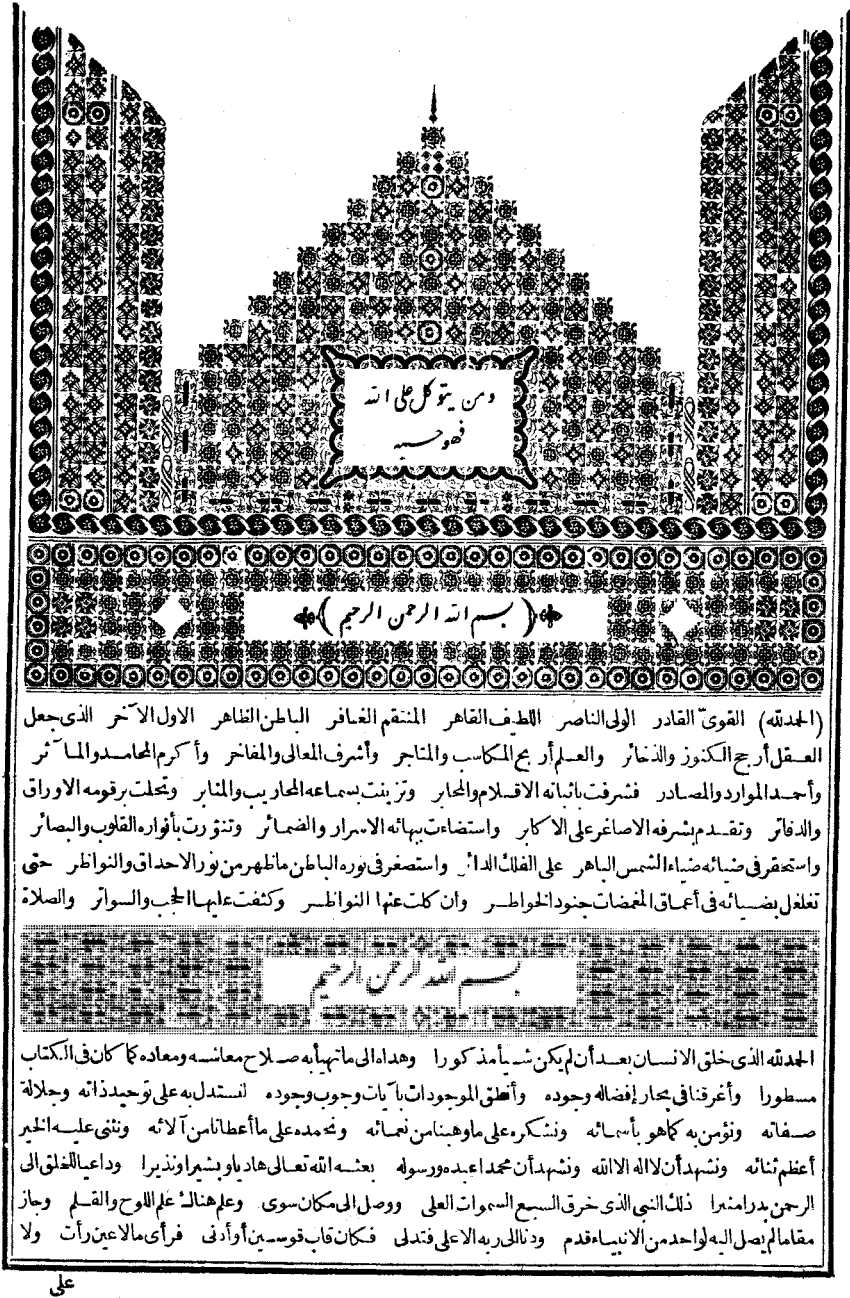 ومن يتوكل على الله
فهو حسبه
(بسم الله الرحمن الرحيم)
(الحمد لله) القوى القادر الولى الناصر اللطيف القاهر المنتقم الغافر الباطن الظاهر الاول الآخر الذى جعل
العقل أرجح الكنوز والذخائر والعلم أربح المكاسب والمتاجر وأشرف المعالى والمفاخر وأكرم المحامد والمآثر
وأحمد الموارد والمصادر فشرفت باثباته الاقلام والمحابر وتزينت بسماعه المحاريب والمنابر وتحلت برقومه الاوراق
والدفاتر وتقدم بشرفه الاصاغر على الاكابر واستضاءت ببهائه الاسرار والضمائر وتنورت بأنواره القلوب والبصائر
واستحقر فى ضيائه ضياء الشمس الباهر على الفلك الدائر واستصغر فى نوره الباطن ماظهر من نور الاحداق والنواظر حتى
تغلغل بضيائه فى أعماق المغمضات جنود الخواطر وان كلت عنها النواظر وكثفت عليها الحجب والسواتر والصلاة
بسم الله الرحمن الرحيم
الحمد لله الذى خلق الانسان بعد أن لم يكن شيأ مذكورا وهداه الى ماتهيأ به صلاح معاشه ومعاده كما كان فى الكتاب
مسطورا وأغرقنا فى بحار إفضاله وجوده وأنطق الموجودات بآيات وجوب وجوده لنستدل به على توحيد ذاته وجلالة
صفاته ونؤمن به كما هو بأسمائه ونشكره على ماوهبنا من نعمائه ونحمده على ماأعطانا من آلائه ونثنى عليه الخير
أعظم ثنائه ونشهد أن لا اله الا الله ونشهد أن محمدا عبده ورسوله بعثه الله تعالى هاديا وبشيرا ونذيرا وداعيا للخلق الى
الرحمن بدرا منيرا ذلك النبى الذى خرق السبع السموات العلى ووصل الى مكان سوى وعلم هناك علم اللوح والقلم وحاز
مقاما لم يصل اليه لواحد من الانبياء قدم ودنا الى ربه الاعلى فتدلى فكان قاب قوسين أو أدنى فرأى مالا عين رأت ولا
على